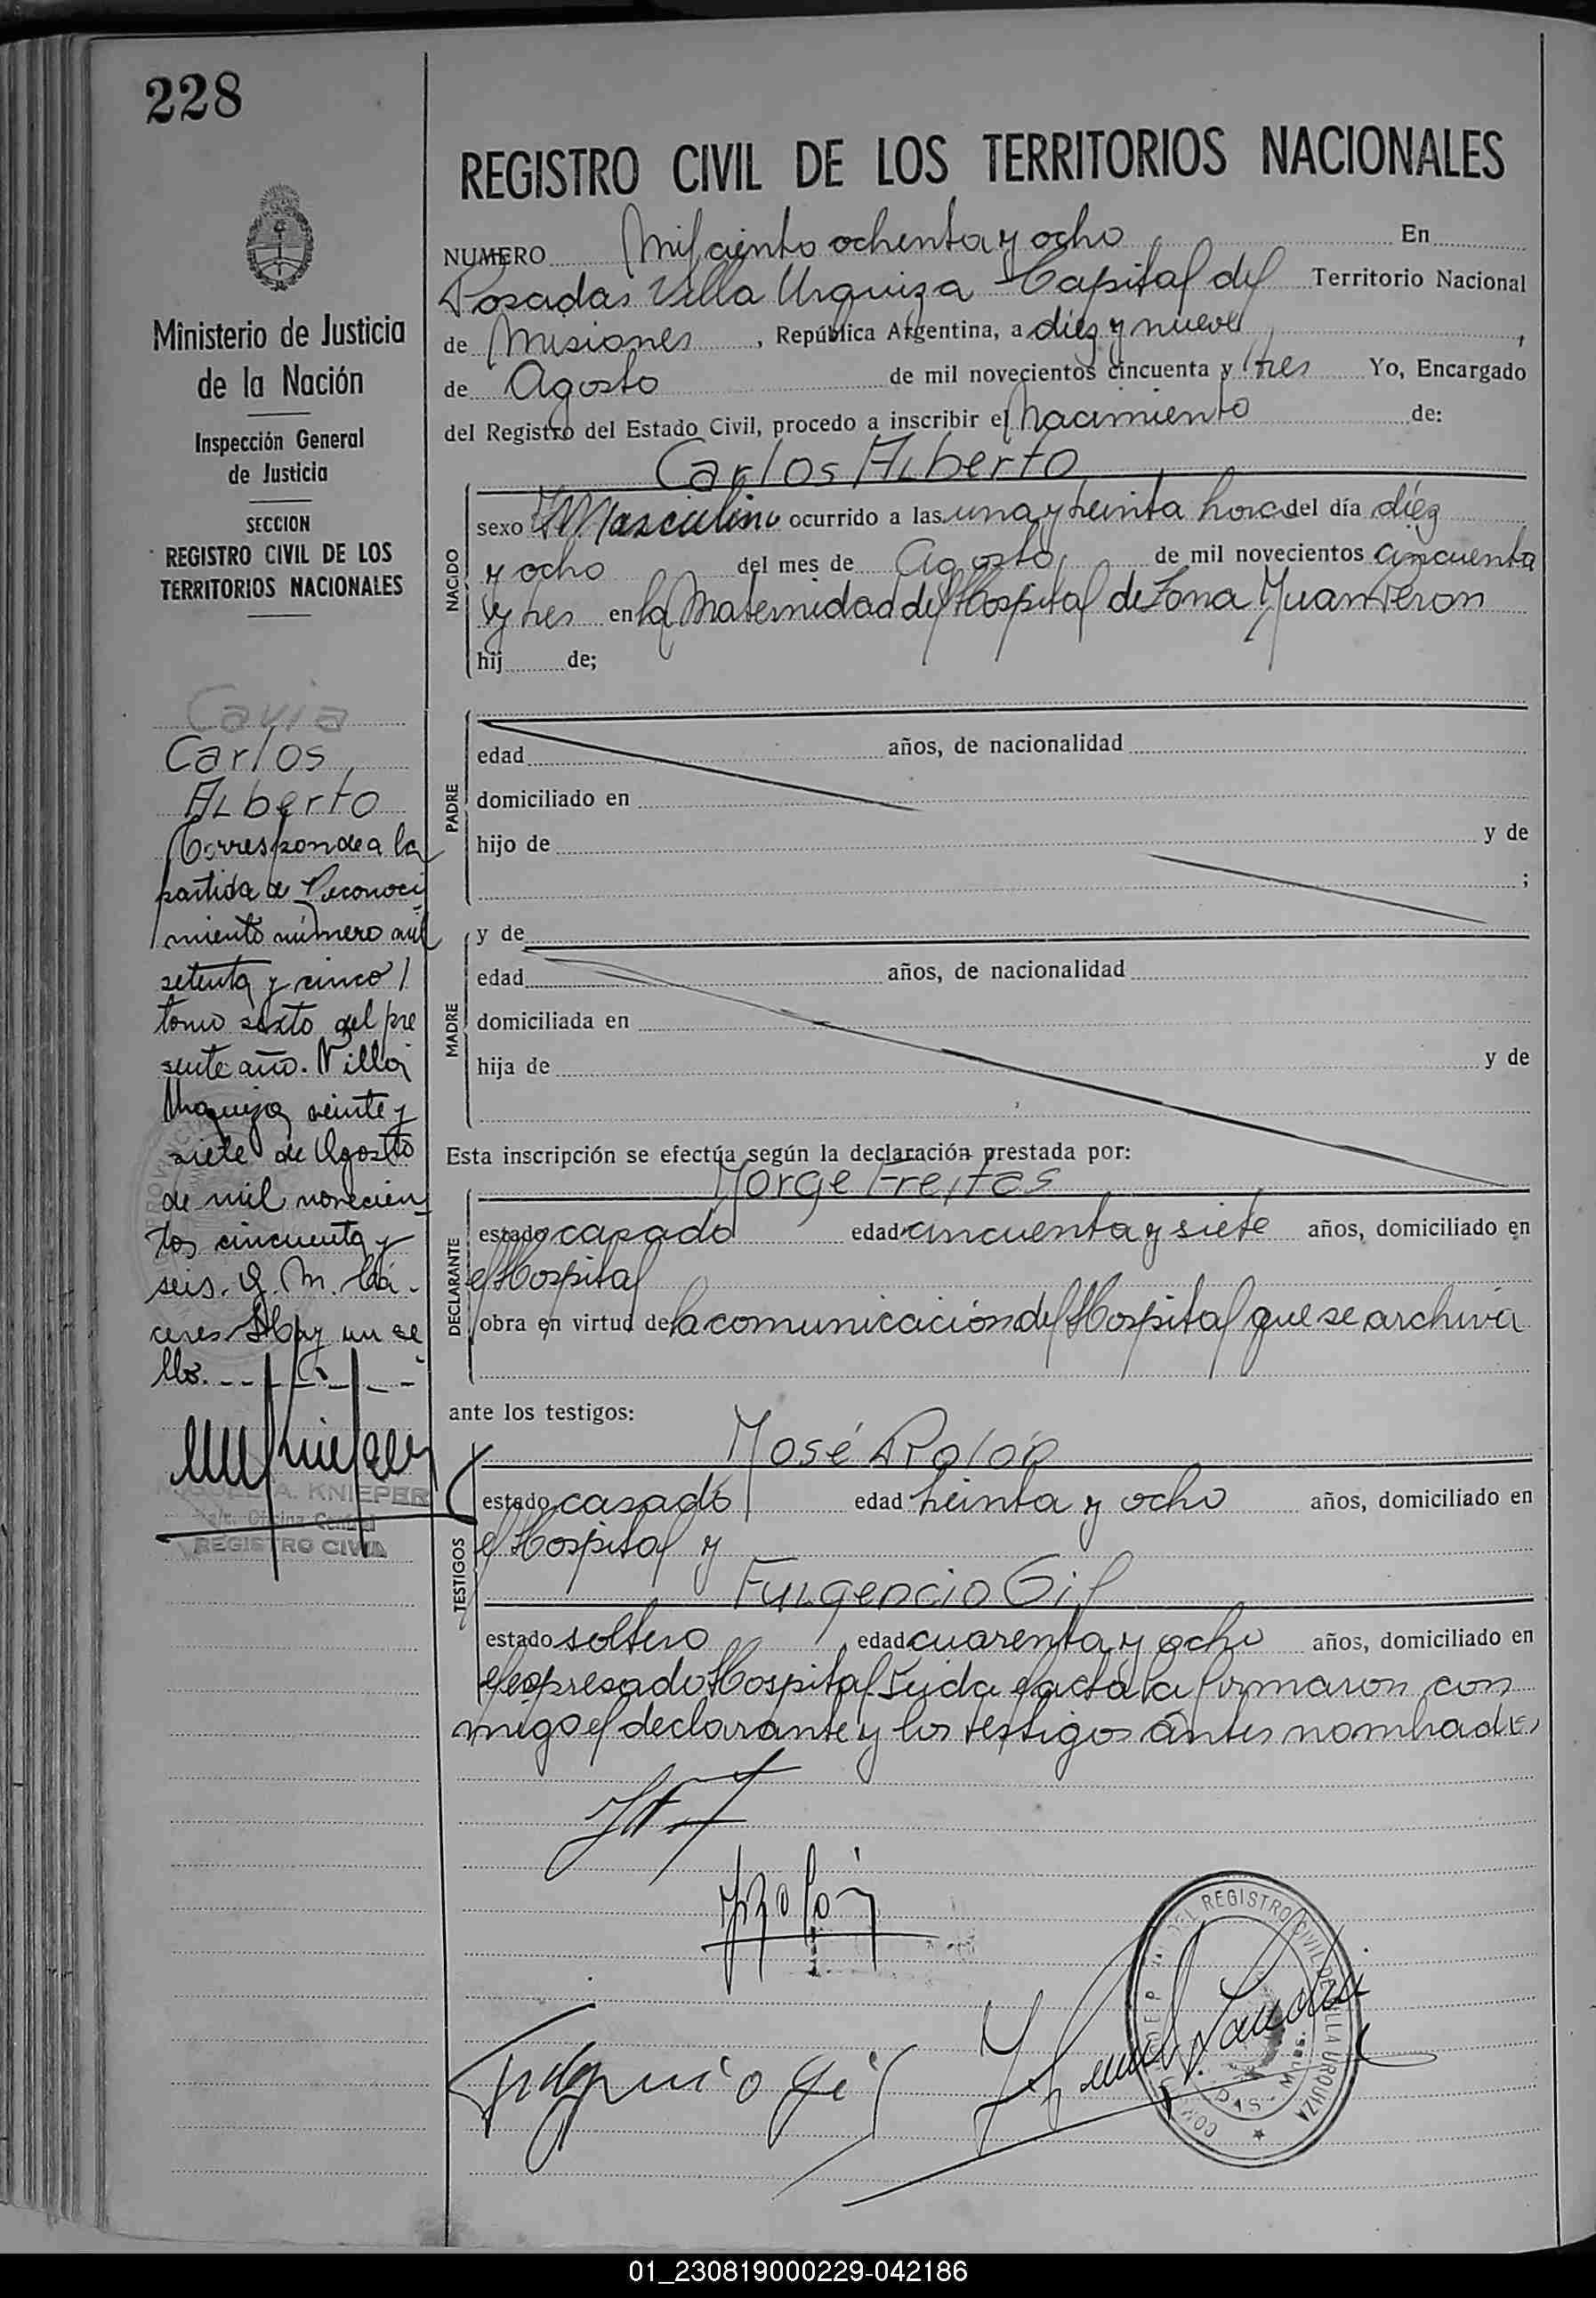 228
REGISTRO CIVIL DE LOS TERRITORIOS NACIONALES
Ministerio de Justicia
de la Nación
Inspección General
de Justicia
SECCION
REGISTRO CIVIL DE LOS
TERRITORIOS NACIONALES
Cavia
Carlos
Alberto
Corresponde a la
partida de Reconoci
miento número mil
setenta y cinco
tomo sexto del pre
sente año. Villa
Urquiza veinte y
siete de Agosto
de mil novecien
tos cincuenta y
seis. G. M. Cá-
ceres Hay un se
llo.
A. KNIEPER
Oficina Central
REGISTRO CIVIL
NUMERO Mil ciento ochenta y ocho En
Posadas Villa Urquiza Capital del Territorio Nacional
de Misiones, República Argentina, a diez y nueve,
de Agosto de mil novecientos cincuenta y tres Yo, Encargado
del Registro del Estado Civil, procedo a inscribir el Nacimiento de:
Carlos Alberto
NACIDO
sexo Masculino ocurrido a las una y treinta horas del día diez
y ocho del mes de Agosto de mil novecientos cincuenta
y tres en la Maternidad del Hospital de Zona Juan Peron
hij de;
PADRE
edad años, de nacionalidad
domiciliado en
hijo de y de
;
MADRE
y de
edad años, de nacionalidad
domiciliada en
hija de y de
Esta inscripción se efectúa según la declaración prestada por:
Jorge Freitas
DECLARANTE
estado casado edad cincuenta y siete años, domiciliado en
el Hospital
obra en virtud de la comunicación del Hospital que se archiva
ante los testigos:
José Rolón
TESTIGOS
estado casado edad treinta y ocho años, domiciliado en
el Hospital y
Fulgencio Gil
estado soltero edad cuarenta y ocho años, domiciliado en
el expresado Hospital Leida el acta la firmaron con
migo el declarante y los testigos antes nombrados
JRolón
Fulgencio Gil
DEL REGISTRO CIVIL DE VILLA URQUIZA
01_230819000229-042186